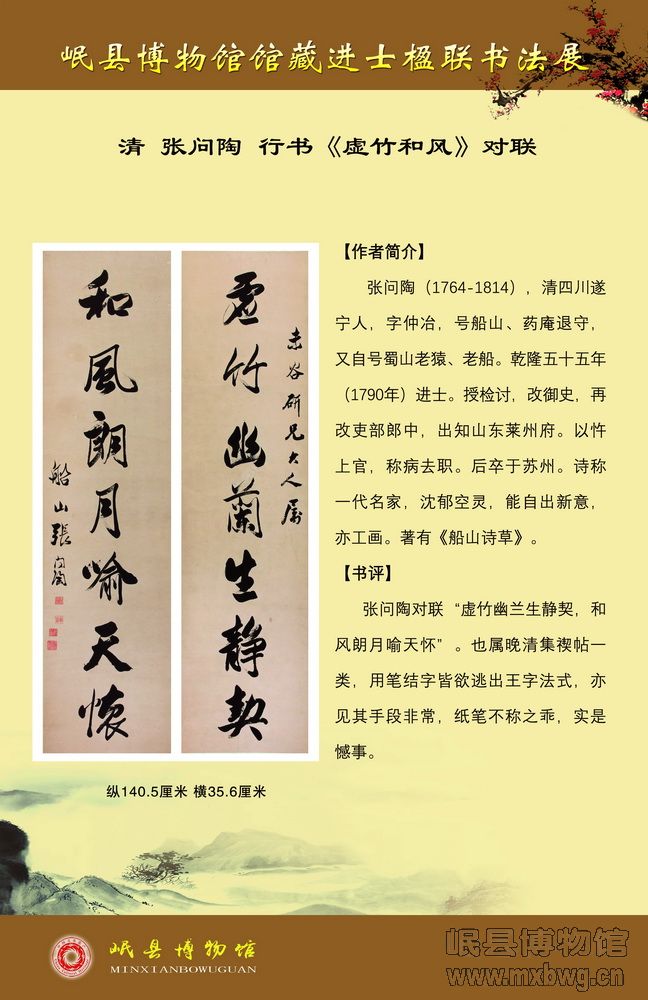 岷县博物馆馆藏进士楹联书法展
清 张问陶 行书《虚竹和风》对联
赤谷研兄大人属
虚竹幽蘭生静契
和風朗月喻天懷
船山張问陶
【作者简介】
张问陶（1764-1814），清四川遂
宁人，字仲冶，号船山、药庵退守，
又自号蜀山老猿、老船。乾隆五十五年
（1790年）进士。授检讨，改御史，再
改吏部郎中，出知山东莱州府。以忤
上官，称病去职。后卒于苏州。诗称
一代名家，沈郁空灵，能自出新意，
亦工画。著有《船山诗草》。
【书评】
张问陶对联“虚竹幽兰生静契，和
风朗月喻天怀”。也属晚清集禊帖一
类，用笔结字皆欲逃出王字法式，亦
见其手段非常，纸笔不称之乖，实是
憾事。
纵140.5厘米 横35.6厘米
岷县博物馆
MINXIANBOWUGUAN
岷县博物馆
www.mxbwg.cn